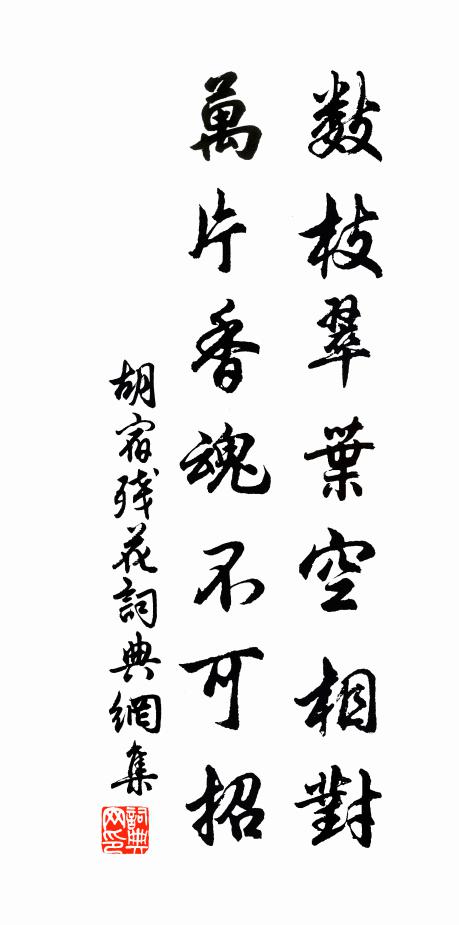 數枝翠葉空相對
萬片香魂不可招
胡宿殘花詞典網集
詞典网印